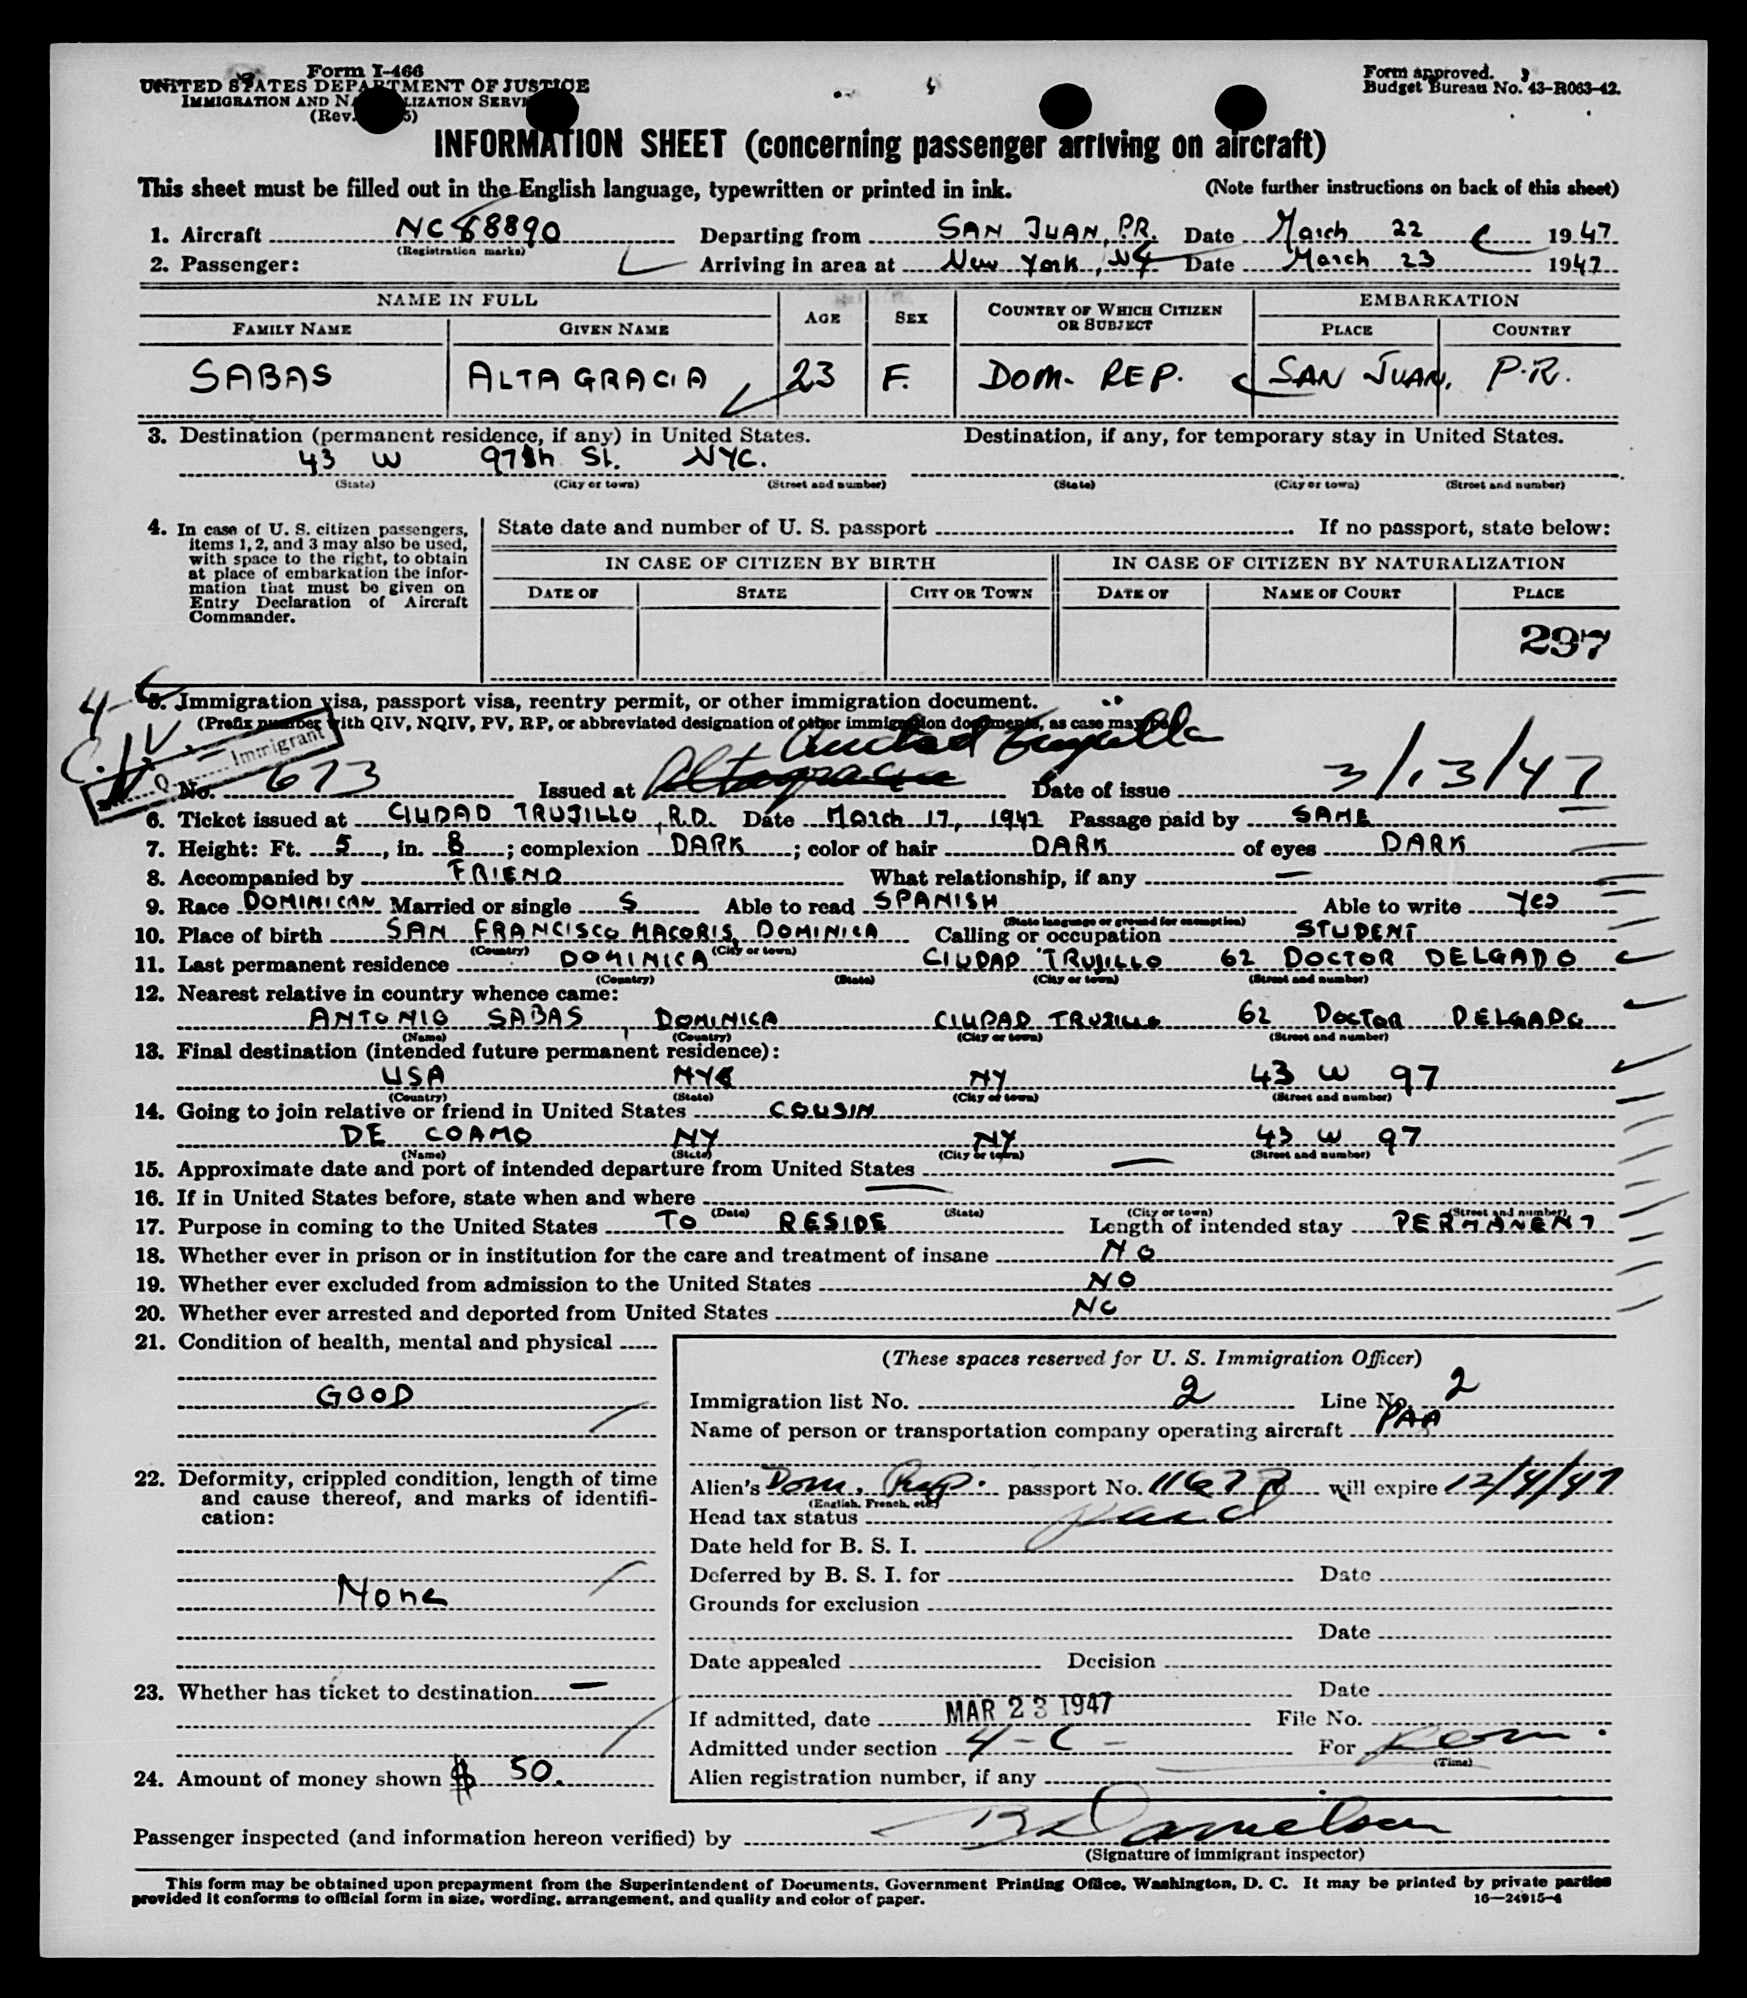 Form I-466
UNITED STATES DEPARTMENT OF JUSTICE
IMMIGRATION AND NATURALIZATION SERVICE
(Rev.
Form approved.
Budget Bureau No. 43-R063-42.
INFORMATION SHEET (concerning passenger arriving on aircraft)
This sheet must be filled out in the English language, typewritten or printed in ink. (Note further instructions on back of this sheet)
1. Aircraft NC 88890 Departing from SAN JUAN, P.R. Date March 22 1947
(Registration marks)
2. Passenger: Arriving in area at New York, NY Date March 23 1947
NAME IN FULL AGE SEX COUNTRY OF WHICH CITIZEN OR SUBJECT EMBARKATION
FAMILY NAME GIVEN NAME PLACE COUNTRY
SABAS ALTAGRACIA 23 F. DOM. REP. SAN JUAN, P.R.
3. Destination (permanent residence, if any) in United States. Destination, if any, for temporary stay in United States.
43 W 97th St. NYC.
(State) (City or town) (Street and number) (State) (City or town) (Street and number)
4. In case of U. S. citizen passengers, items 1, 2, and 3 may also be used, with space to the right, to obtain at place of embarkation the information that must be given on Entry Declaration of Aircraft Commander.
State date and number of U. S. passport If no passport, state below:
IN CASE OF CITIZEN BY BIRTH IN CASE OF CITIZEN BY NATURALIZATION
DATE OF STATE CITY OR TOWN DATE OF NAME OF COURT PLACE
297
4-C
5. Immigration visa, passport visa, reentry permit, or other immigration document.
(Prefix number with QIV, NQIV, PV, RP, or abbreviated designation of other immigration documents, as case may be)
Q Immigrant
Ciudad Trujillo
No. 673 Issued at Altagracia Date of issue 3/13/47
6. Ticket issued at CIUDAD TRUJILLO, R.D. Date March 17, 1947 Passage paid by SAME
7. Height: Ft. 5, in. 8; complexion DARK; color of hair DARK of eyes DARK
8. Accompanied by FRIEND What relationship, if any —
9. Race DOMINICAN Married or single S Able to read SPANISH Able to write Yes
(State language or ground for exemption)
10. Place of birth SAN FRANCISCO MACORIS, DOMINICA Calling or occupation STUDENT
(Country) (City or town)
11. Last permanent residence DOMINICA CIUDAD TRUJILLO 62 DOCTOR DELGADO
(Country) (State) (City or town) (Street and number)
12. Nearest relative in country whence came:
ANTONIO SABAS, DOMINICA CIUDAD TRUJILLO 62 DOCTOR DELGADO
(Name) (Country) (City or town) (Street and number)
13. Final destination (intended future permanent residence):
USA NYC NY 43 W 97
(Country) (State) (City or town) (Street and number)
14. Going to join relative or friend in United States COUSIN
DE COAMO NY NY 43 W 97
(Name) (State) (City or town) (Street and number)
15. Approximate date and port of intended departure from United States —
16. If in United States before, state when and where —
(Date) (State) (City or town) (Street and number)
17. Purpose in coming to the United States TO RESIDE Length of intended stay PERMANENT
18. Whether ever in prison or in institution for the care and treatment of insane NO
19. Whether ever excluded from admission to the United States NO
20. Whether ever arrested and deported from United States NO
21. Condition of health, mental and physical
GOOD
22. Deformity, crippled condition, length of time and cause thereof, and marks of identification:
None
23. Whether has ticket to destination —
24. Amount of money shown $ 50.
(These spaces reserved for U. S. Immigration Officer)
Immigration list No. 2 Line No. 2
Name of person or transportation company operating aircraft PAA
Alien's Dom. Rep. passport No. 11678 will expire 12/4/47
(English, French, etc.)
Head tax status paid
Date held for B. S. I.
Deferred by B. S. I. for Date
Grounds for exclusion
Date
Date appealed Decision
Date
If admitted, date MAR 23 1947 File No.
Admitted under section 4-C- For Perm.
(Time)
Alien registration number, if any
Passenger inspected (and information hereon verified) by B Danielson
(Signature of immigrant inspector)
This form may be obtained upon prepayment from the Superintendent of Documents, Government Printing Office, Washington, D. C. It may be printed by private parties
provided it conforms to official form in size, wording, arrangement, and quality and color of paper. 16—24915-4